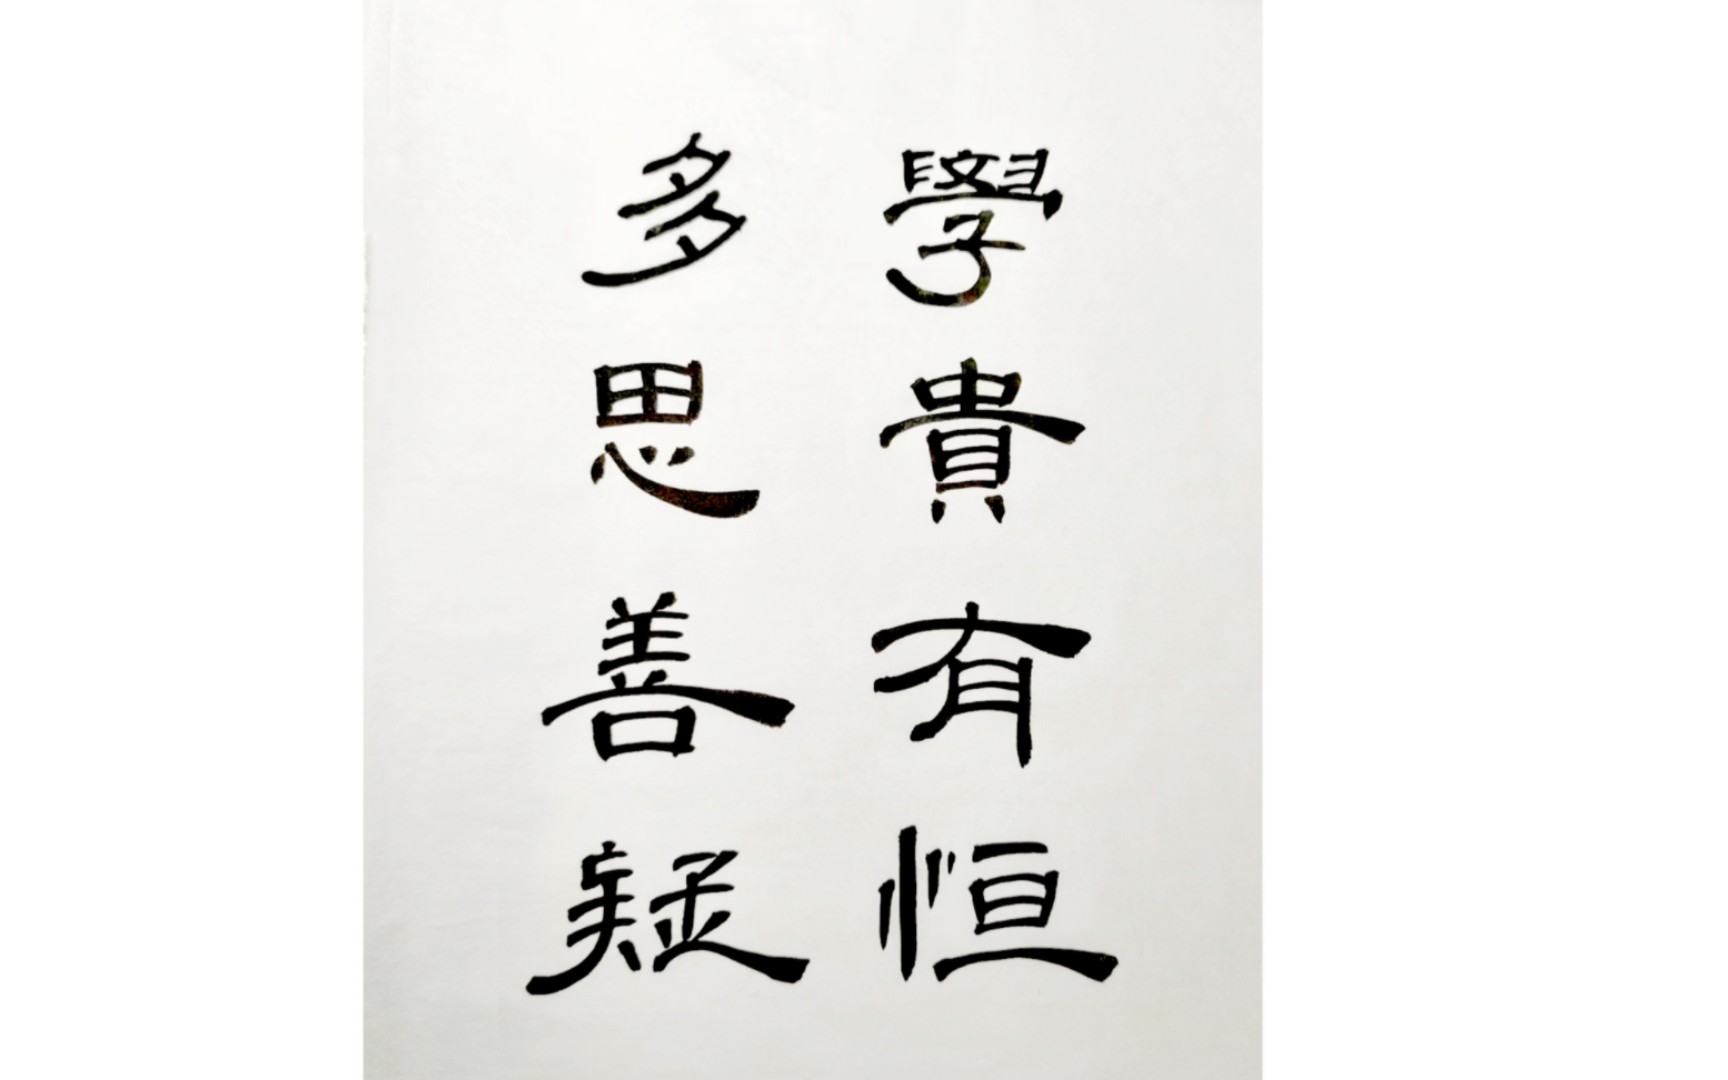 學貴有恒
多思善疑